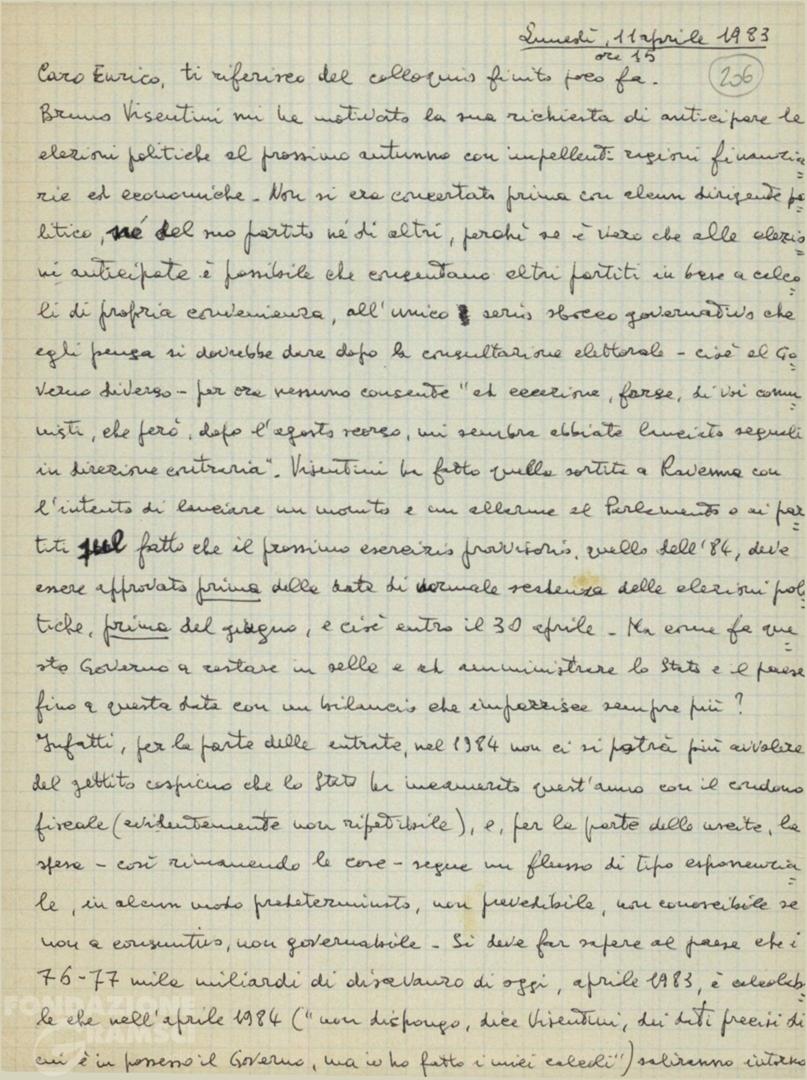 Lunedì, 11 aprile 1983
ore 15
206
Caro Enrico, ti riferisco del colloquio finito poco fa.
Bruno Visentini mi ha motivato la sua richiesta di anticipare le
elezioni politiche al prossimo autunno con impellenti ragioni finanzia=
rie ed economiche - Non si era concertato prima con alcun dirigente po=
litico, né del suo partito né di altri, perché se è vero che alle elezio=
ni anticipate è possibile che consentano altri partiti in base a calco=
li di propria convenienza, all'unico serio sbocco governativo che
egli pensa si dovrebbe dare dopo la consultazione elettorale - cioè al Go=
verno diverso - per ora nessuno consente "ad eccezione, forse, di voi comu=
nisti, che però, dopo l'agosto scorso, mi sembra abbiate lanciato segnali
in direzione contraria". Visentini ha fatto quella sortita a Ravenna con
l'intento di lanciare un monito e un allarme al Parlamento e ai par=
titi sul fatto che il prossimo esercizio provvisorio, quello dell'84, deve
essere approvato prima della data di normale scadenza delle elezioni poli=
tiche, prima del giugno, e cioè entro il 30 aprile - Ma come fa que=
sto Governo a restare in sella e ad amministrare lo Stato e il paese
fino a questa data con un bilancio che impazzisce sempre più?
Infatti, per la parte delle entrate, nel 1984 non ci si potrà più avvalere
del gettito cospicuo che lo Stato ha incamerato quest'anno con il condono
fiscale (evidentemente non ripetibile), e, per la parte delle uscite, la
spesa - così rimanendo le cose - segue un flusso di tipo esponenzia=
le, in alcun modo predeterminato, non prevedibile, non conoscibile se
non a consuntivo, non governabile - Si deve far sapere al paese che i
76-77 mila miliardi di disavanzo di oggi, aprile 1983, è calcolabi=
le che nell'aprile 1984 ("non dispongo, dice Visentini, dei dati precisi di
cui è in possesso il Governo, ma io ho fatto i miei calcoli") saliranno intorno
FONDAZIONE
GRAMSCI